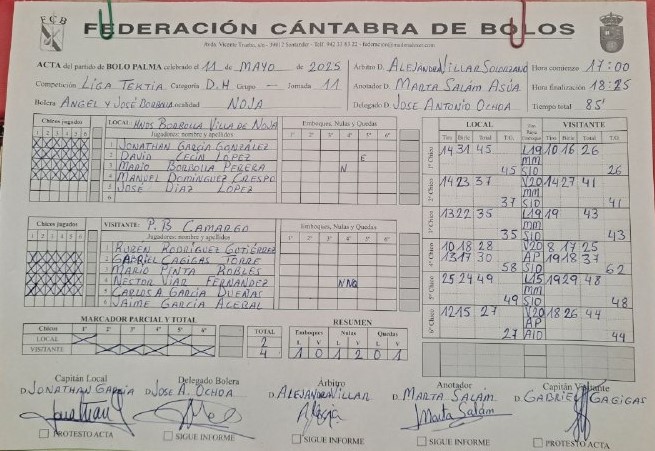 FCB
FEDERACIÓN CÁNTABRA DE BOLOS
ACTA del partido de BOLO PALMA celebrado el 11 de MAYO de 2025 Árbitro D. ALEJANDRA VILLAR SOLORZANO Hora comienzo 17:00
Competición LIGA TEKTIA Categoría D.H Grupo — Jornada 11 Anotador D. MARTA SALÁM ASÚA Hora finalización 18:25
Bolera ANGEL Y JOSÉ BORBOLLA Localidad NOJA Delegado D. JOSE ANTONIO OCHOA Tiempo total 85'
Chicos jugados LOCAL: HNOS BORBOLLA VILLA DE NOJA Emboques, Nulas y Quedas
1 2 3 4 5 6 Jugadores: nombre y apellidos 1º 2º 3º 4º 5º 6º
1 JONATHAN GARCÍA GONZÁLEZ
2 DAVID CECÍN LÓPEZ E
3 MARIO BORBOLLA PERERA N
4 MANUEL DOMÍNGUEZ CRESPO
5 JOSÉ DÍAZ LÓPEZ
6
Chicos jugados VISITANTE: P.B CAMARGO Emboques, Nulas y Quedas
1 2 3 4 5 6 Jugadores: nombre y apellidos 1º 2º 3º 4º 5º 6º
1 RUBEN RODRÍGUEZ GUTIÉRREZ
2 GABRIEL CAGIGAS TORRE
3 MARIO PINTA ROBLES
4 NESTOR VIAR FERNÁNDEZ NNQ
5 CARLOS A GARCÍA DUEÑAS
6 JAIME GARCÍA ACEBAL
LOCAL VISITANTE
Tiro Birle Total T/G. Tiro Birle Total T/G
1º Chico 14 31 45 L19 10 16 26
MM
45 SIO 26
2º Chico 14 23 37 V20 14 27 41
MM
37 SIO 41
3º Chico 13 22 35 L19 19 43
MM
35 SIO 43
4º Chico 10 18 28 V20 8 17 25
13 17 30 AP 19 18 37
58 SIO 62
5º Chico 25 24 49 L15 19 29 48
MM
49 SIO 48
6º Chico 12 15 27 V20 18 26 44
AP
27 AIO 44
MARCADOR PARCIAL Y TOTAL
Chicos 1º 2º 3º 4º 5º 6º TOTAL
LOCAL 2
VISITANTE 4
RESUMEN
Emboques Nulas Quedas
L V L V L V
1 0 1 2 0 1
Capitán Local Delegado Bolera Árbitro Anotador Capitán Visitante
D. JONATHAN GARCÍA D. JOSE A. OCHOA D. ALEJANDRA VILLAR D. MARTA SALÁM. D. GABRIEL CAGIGAS
Jonathan Marta Salám
PROTESTO ACTA SIGUE INFORME SIGUE INFORME SIGUE INFORME PROTESTO ACTA